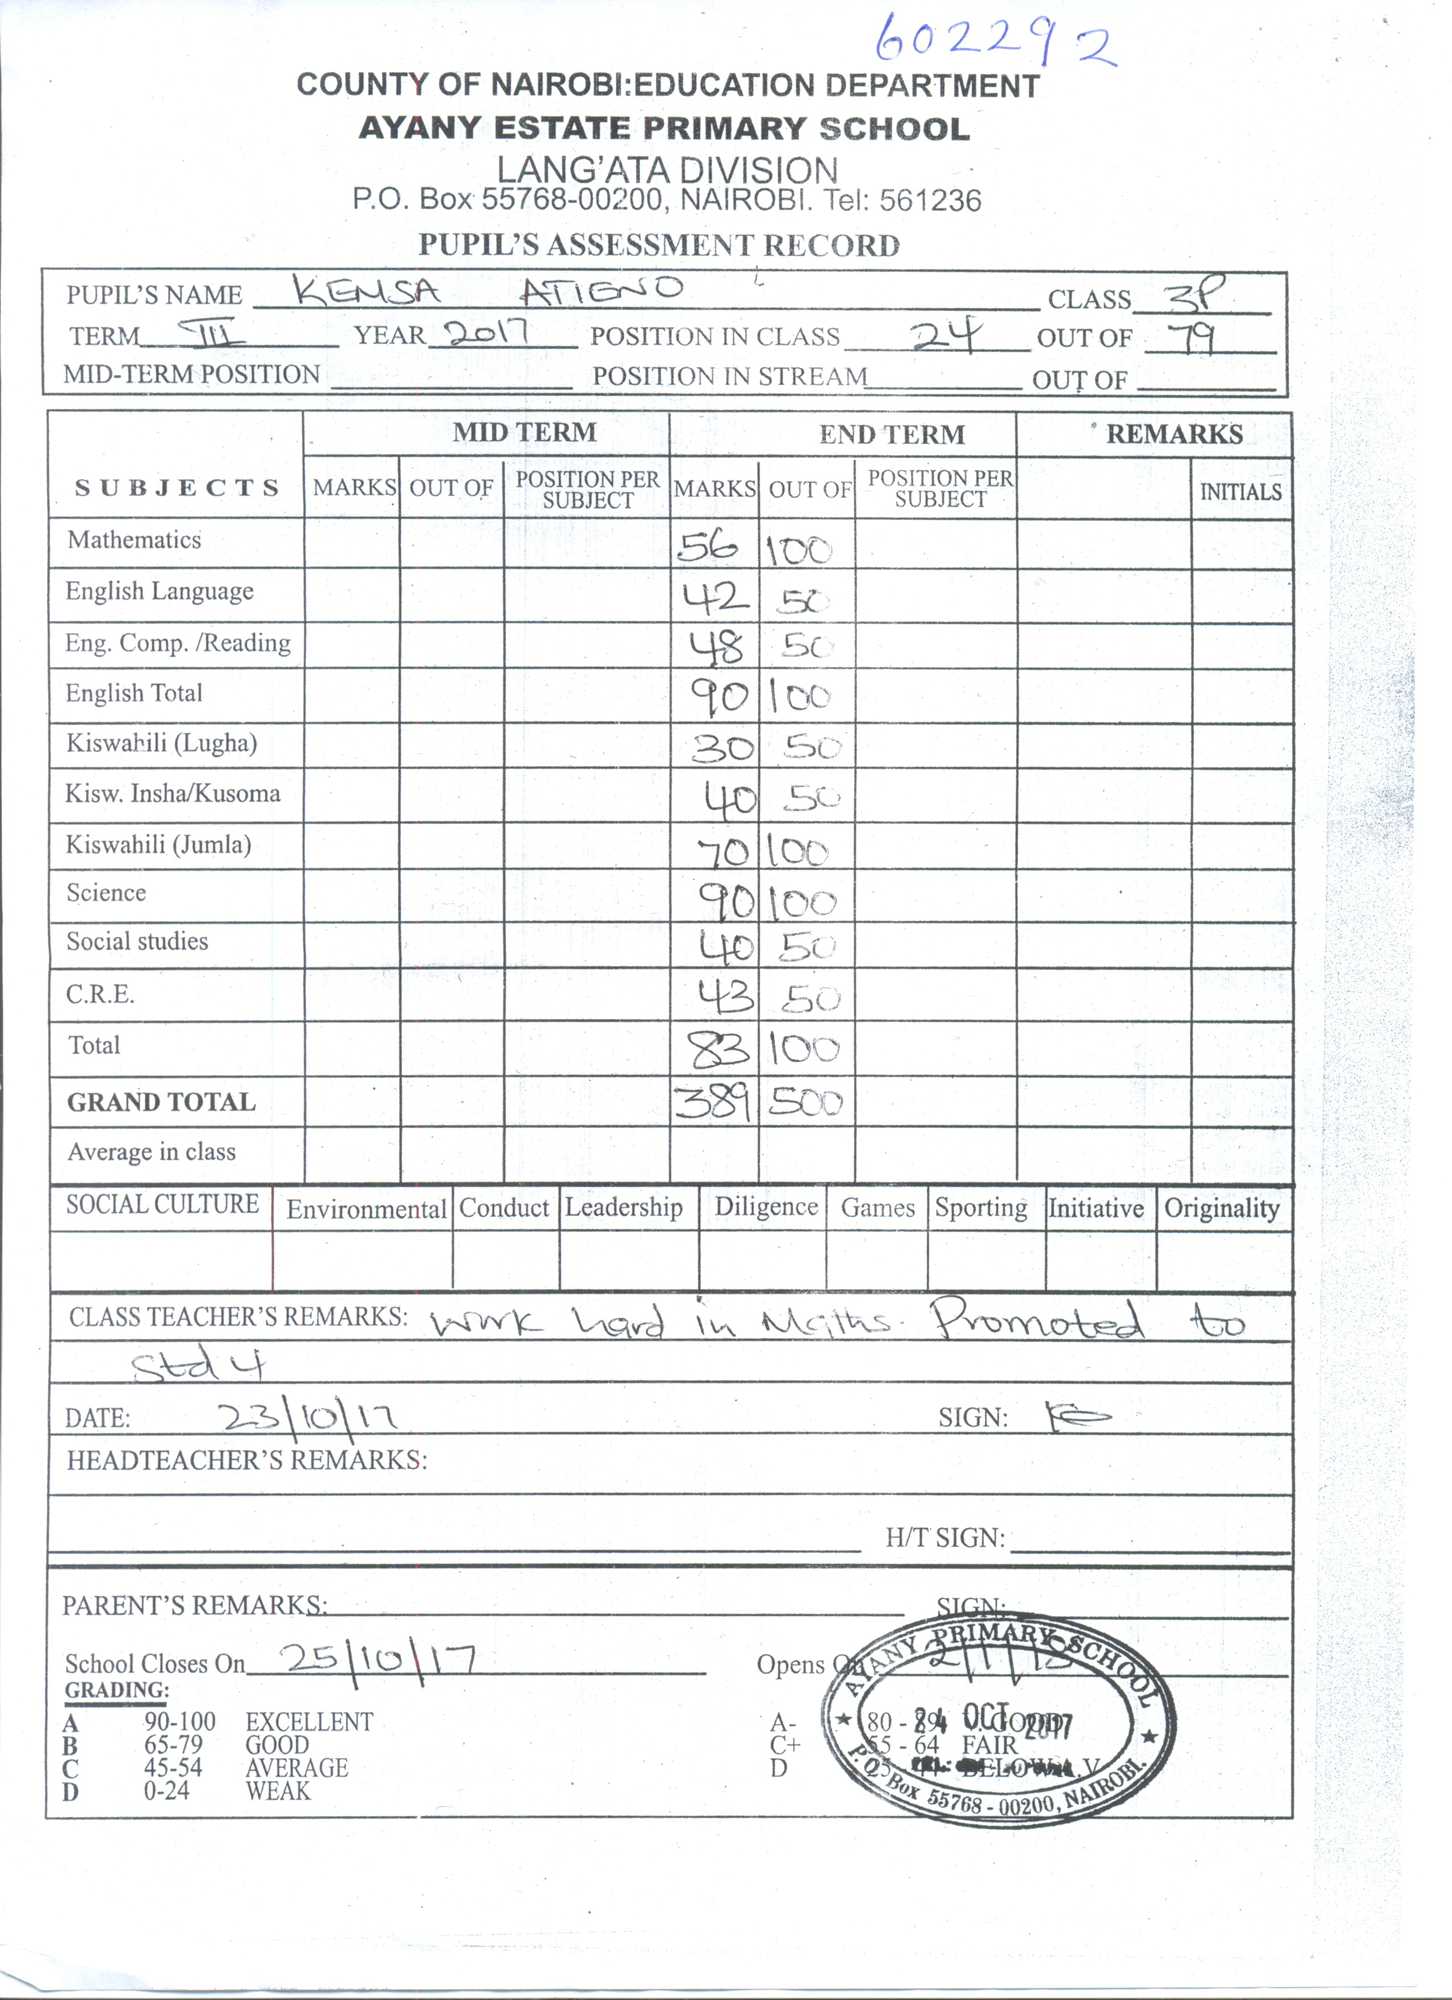 602292
COUNTY OF NAIROBI:EDUCATION DEPARTMENT
AYANY ESTATE PRIMARY SCHOOL
LANG'ATA DIVISION
P.O. Box 55768-00200, NAIROBI. Tel: 561236
PUPIL'S ASSESSMENT RECORD
PUPIL'S NAME KEMSA ATIENO CLASS 3P
TERM III YEAR 2017 POSITION IN CLASS 24 OUT OF 79
MID-TERM POSITION POSITION IN STREAM OUT OF
MID TERM END TERM REMARKS
SUBJECTS MARKS OUT OF POSITION PER SUBJECT MARKS OUT OF POSITION PER SUBJECT INITIALS
Mathematics 56 100
English Language 42 50
Eng. Comp. /Reading 48 50
English Total 90 100
Kiswahili (Lugha) 30 50
Kisw. Insha/Kusoma 40 50
Kiswahili (Jumla) 70 100
Science 90 100
Social studies 40 50
C.R.E. 43 50
Total 83 100
GRAND TOTAL 389 500
Average in class
SOCIAL CULTURE Environmental Conduct Leadership Diligence Games Sporting Initiative Originality
CLASS TEACHER'S REMARKS: Work hard in Maths. Promoted to
Std 4
DATE: 23/10/17 SIGN:
HEADTEACHER'S REMARKS:
H/T SIGN:
PARENT'S REMARKS: SIGN:
School Closes On 25/10/17 Opens On
GRADING:
A 90-100 EXCELLENT A- 80 - 89 V. GOOD
B 65-79 GOOD C+ 55 - 64 FAIR
C 45-54 AVERAGE D 25 - BELOW A.V
D 0-24 WEAK
AYANY PRIMARY SCHOOL
24 OCT 2017
P.O. Box 55768 - 00200, NAIROBI.